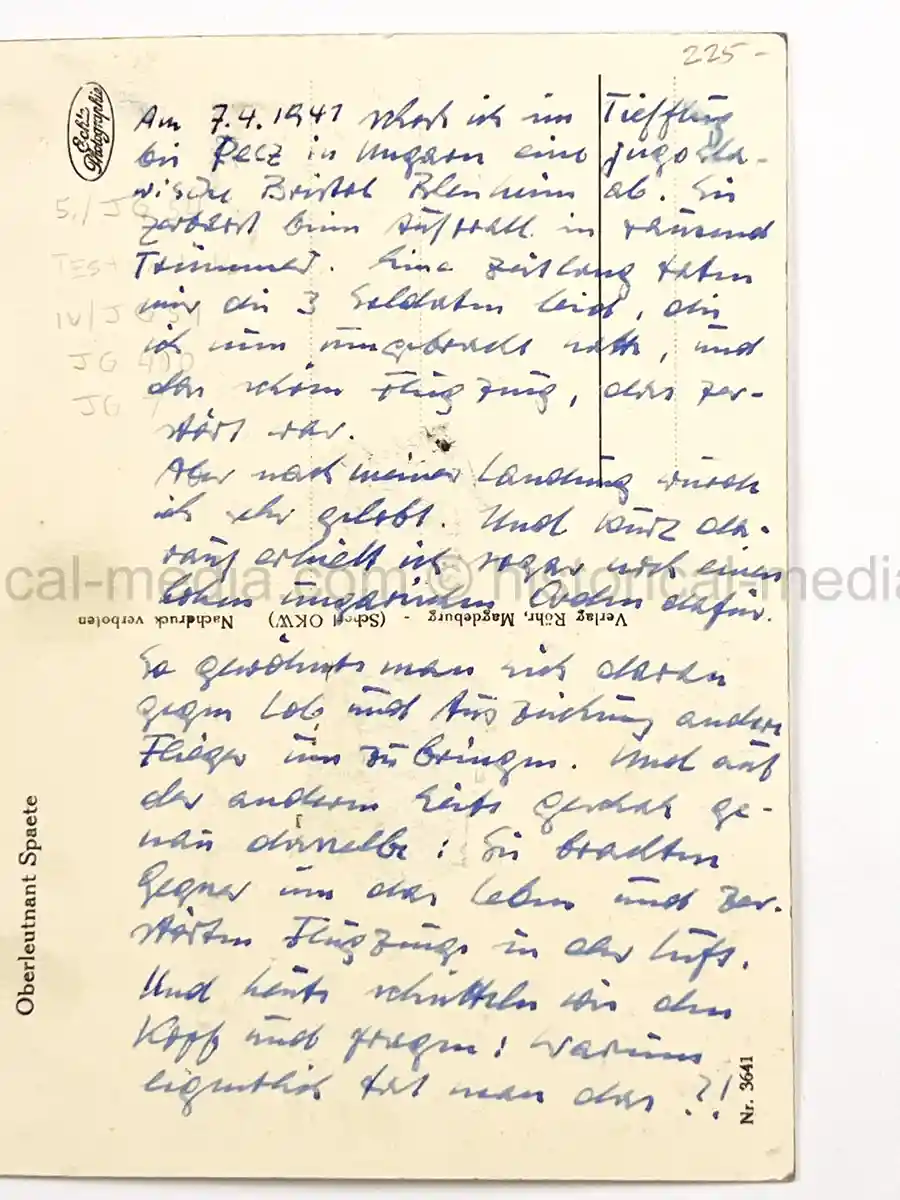 225-
Echte Photographie
Am 7.4.1941 schoß ich im Tiefflug
bei Pecz in Ungarn eine jugosla-
wische Bristol Blenheim ab. Sie
zerbarst beim Aufprall in tausend
Trümmer. Eine Zeitlang taten
mir die 3 Soldaten leid, die
ich nun umgebracht hatte, und
das schöne Flugzeug, das zer-
stört war.
Aber nach meiner Landung wurde
ich sehr gelobt. Und kurz da-
rauf erhielt ich sogar noch einen
hohen ungarischen Orden dafür.
So gewöhnte man sich daran
gegen Lob und Auszeichnung andere
Flieger umzubringen. Und auf
der anderen Seite geschah ge-
nau dasselbe: Sie brachten
Gegner um das Leben und zer-
störten Flugzeuge in der Luft.
Und heute schütteln wir den
Kopf und fragen: Warum
eigentlich tat man das ?!
5./JG
TEST
IV/JG 54
JG 400
JG 7
cal-media.com © historical-media
Verlag Röhr, Magdeburg - (Scherl OKW) Nachdruck verboten
Oberleutnant Spaete
Nr. 3641